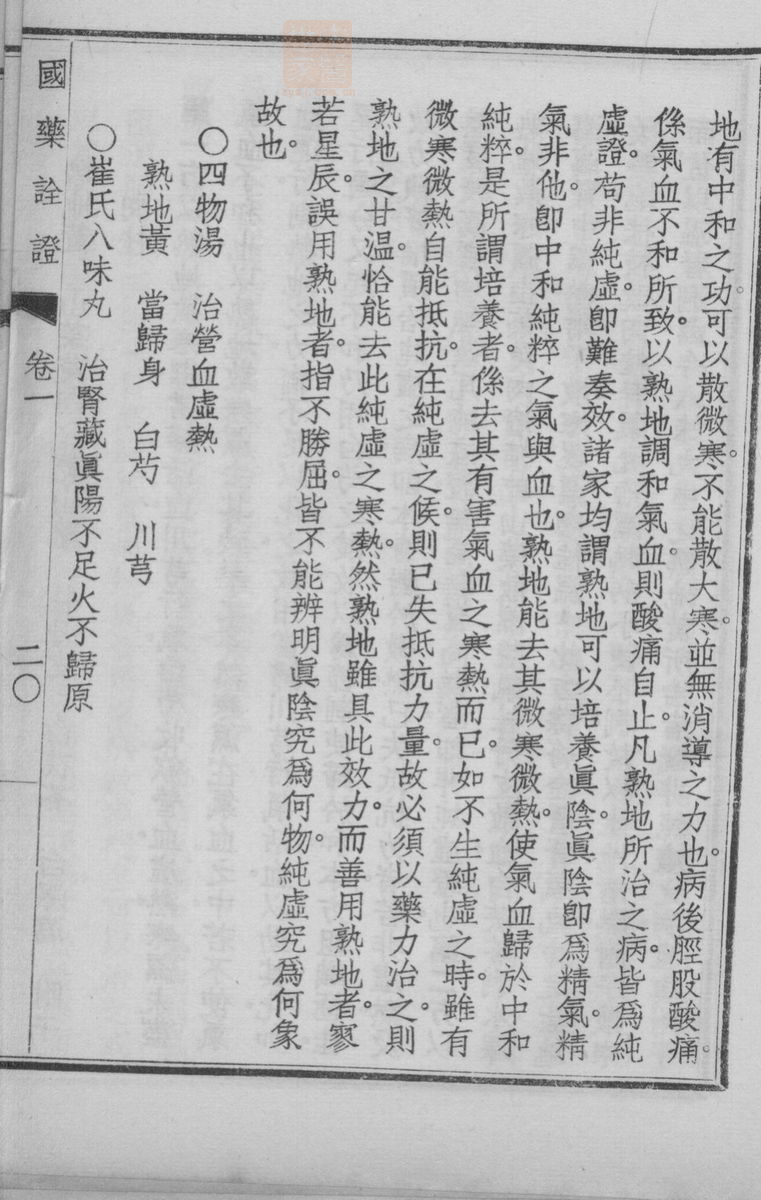 地有中和之功。可以散微寒。不能散大寒。並無消導之力也。病後脛股酸痛。
係氣血不和所致。以熟地調和氣血。則酸痛自止。凡熟地所治之病。皆爲純
虛證。苟非純虛。卽難奏效。諸家均謂熟地可以培養眞陰。眞陰卽爲精氣。精
氣非他。卽中和純粹之氣與血也。熟地能去其微寒微熱。使氣血歸於中和
純粹。是所謂培養者。係去其有害氣血之寒熱而已。如不生純虛之時。雖有
微寒微熱。自能抵抗。在純虛之候。則已失抵抗力量。故必須以藥力治之。則
熟地之甘温。恰能去此純虛之寒熱。然熟地雖具此效力。而善用熟地者。寥
若星辰。誤用熟地者。指不勝屈。皆不能辨明眞陰究爲何物。純虛究爲何象
故也。
〇四物湯　治營血虛熱
熟地黃　當歸身　白芍　川芎
〇崔氏八味丸　治腎藏眞陽不足火不歸原
國藥詮證　卷一　二〇